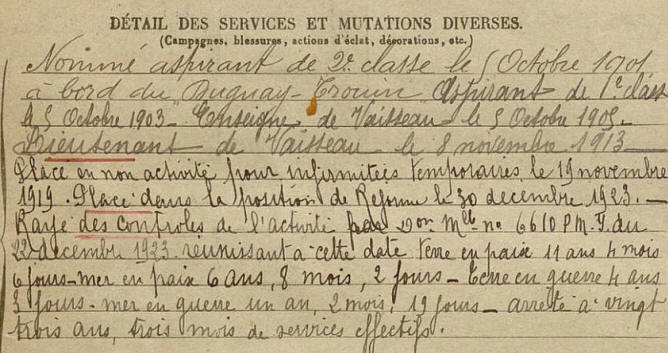 DÉTAIL DES SERVICES ET MUTATIONS DIVERSES.
(Campagnes, blessures, actions d'éclat, décorations, etc.)
Nommé aspirant de 2e classe le 5 Octobre 1901
à bord du Duguay-Trouin Aspirant de 1e classe
le 5 Octobre 1903 - Enseigne de Vaisseau le 5 Octobre 1905 -
Lieutenant de Vaisseau le 8 novembre 1913 -
Placé en non activité pour infirmitées temporaires, le 19 novembre
1919. Placé dans la position de Réforme le 30 décembre 1923. -
Rayé des contrôles de l'activité par non Mlle no 6610 P.M. du
22 décembre 1923 réunissant à cette date terre en paix 11 ans 4 mois
6 jours - mer en paix 6 ans, 8 mois, 2 jours - Terre en guerre 4 ans
3 jours - mer en guerre un an, 2 mois, 19 jours - arrêté à vingt
trois ans, trois mois de services effectifs.